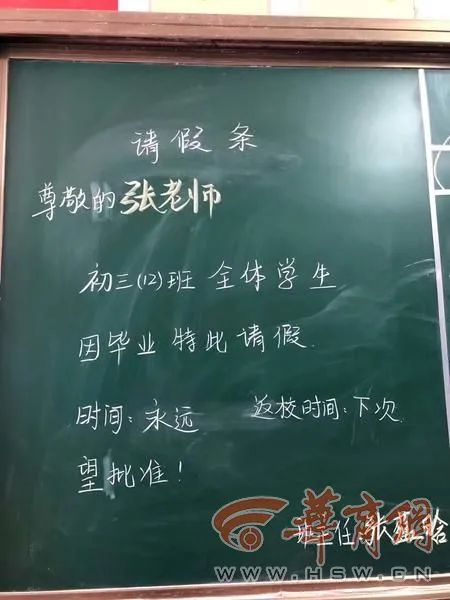 请假条
尊敬的张老师
初三(12)班 全体学生
因毕业 特此请假.
时间:永远 返校时间:下次.
望批准!
班主任
华商网
WWW.HSW.CN